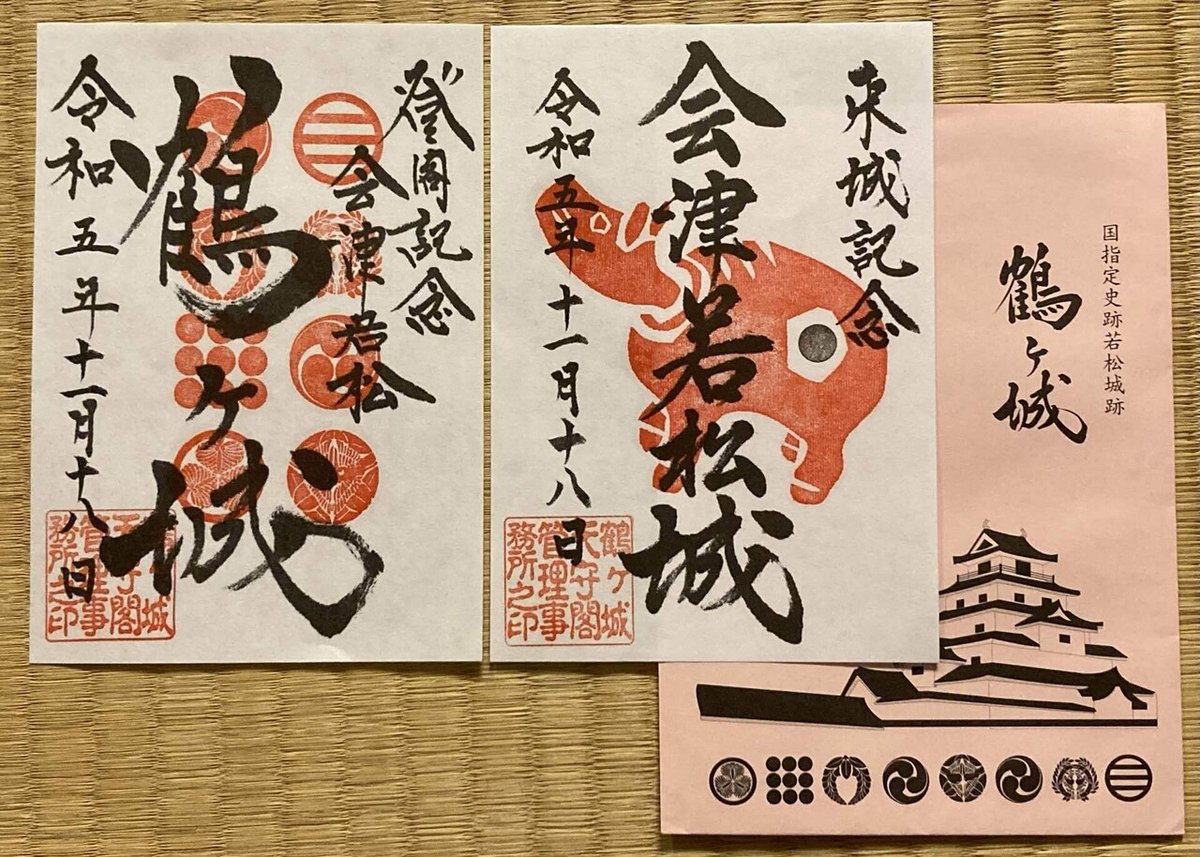 登閣記念
会津若松
鶴ヶ城
令和五年十一月十八日
鶴ヶ城
天守閣
管理事
務所之印
来城記念
会津若松城
令和五年十一月十八日
鶴ヶ城
天守閣
管理事
務所之印
国指定史跡若松城跡
鶴ヶ城